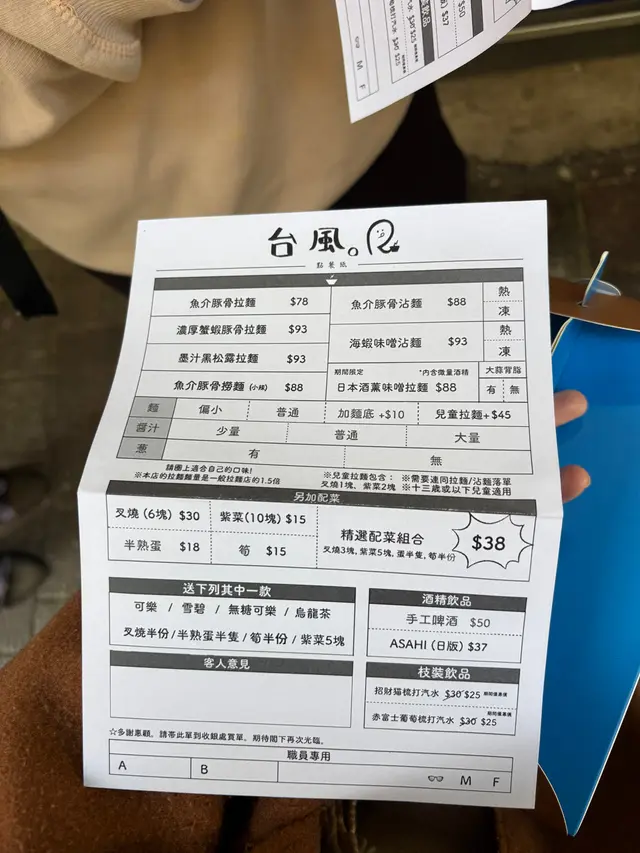 台風。
點餐紙
魚介豚骨拉麵 $78
濃厚蟹蝦豚骨拉麵 $93
墨汁黑松露拉麵 $93
魚介豚骨撈麵 (小辣) $88
魚介豚骨沾麵 $88 熱 凍
海蝦味噌沾麵 $93 熱 凍
期間限定 *內含微量酒精 大蒜背脂
日本酒薰味噌拉麵 $88 有 無
麵 偏小 普通 加麵底 +$10 兒童拉麵+$45
醬汁 少量 普通 大量
蔥 有 無
請圈上適合自己的口味!
※本店的拉麵麵量是一般拉麵店的1.5倍
※兒童拉麵包含: ※需要連同拉麵/沾麵落單
叉燒1塊、紫菜2塊 ※十三歲或以下兒童適用
另加配菜
叉燒 (6塊) $30 紫菜(10塊) $15
半熟蛋 $18 筍 $15
精選配菜組合
叉燒3塊, 紫菜5塊, 蛋半隻, 筍半份
$38
送下列其中一款
可樂 / 雪碧 / 無糖可樂 / 烏龍茶
叉燒半份/半熟蛋半隻/筍半份/紫菜5塊
酒精飲品
手工啤酒 $50
ASAHI (日版) $37
客人意見
枝裝飲品
招財猫梳打汽水 $30 $25 期間優惠價
赤富士葡萄梳打汽水 $30 $25 期間優惠價
☆多謝惠顧。請帶此單到收銀處買單。期待閣下再次光臨。
職員專用
A B M F